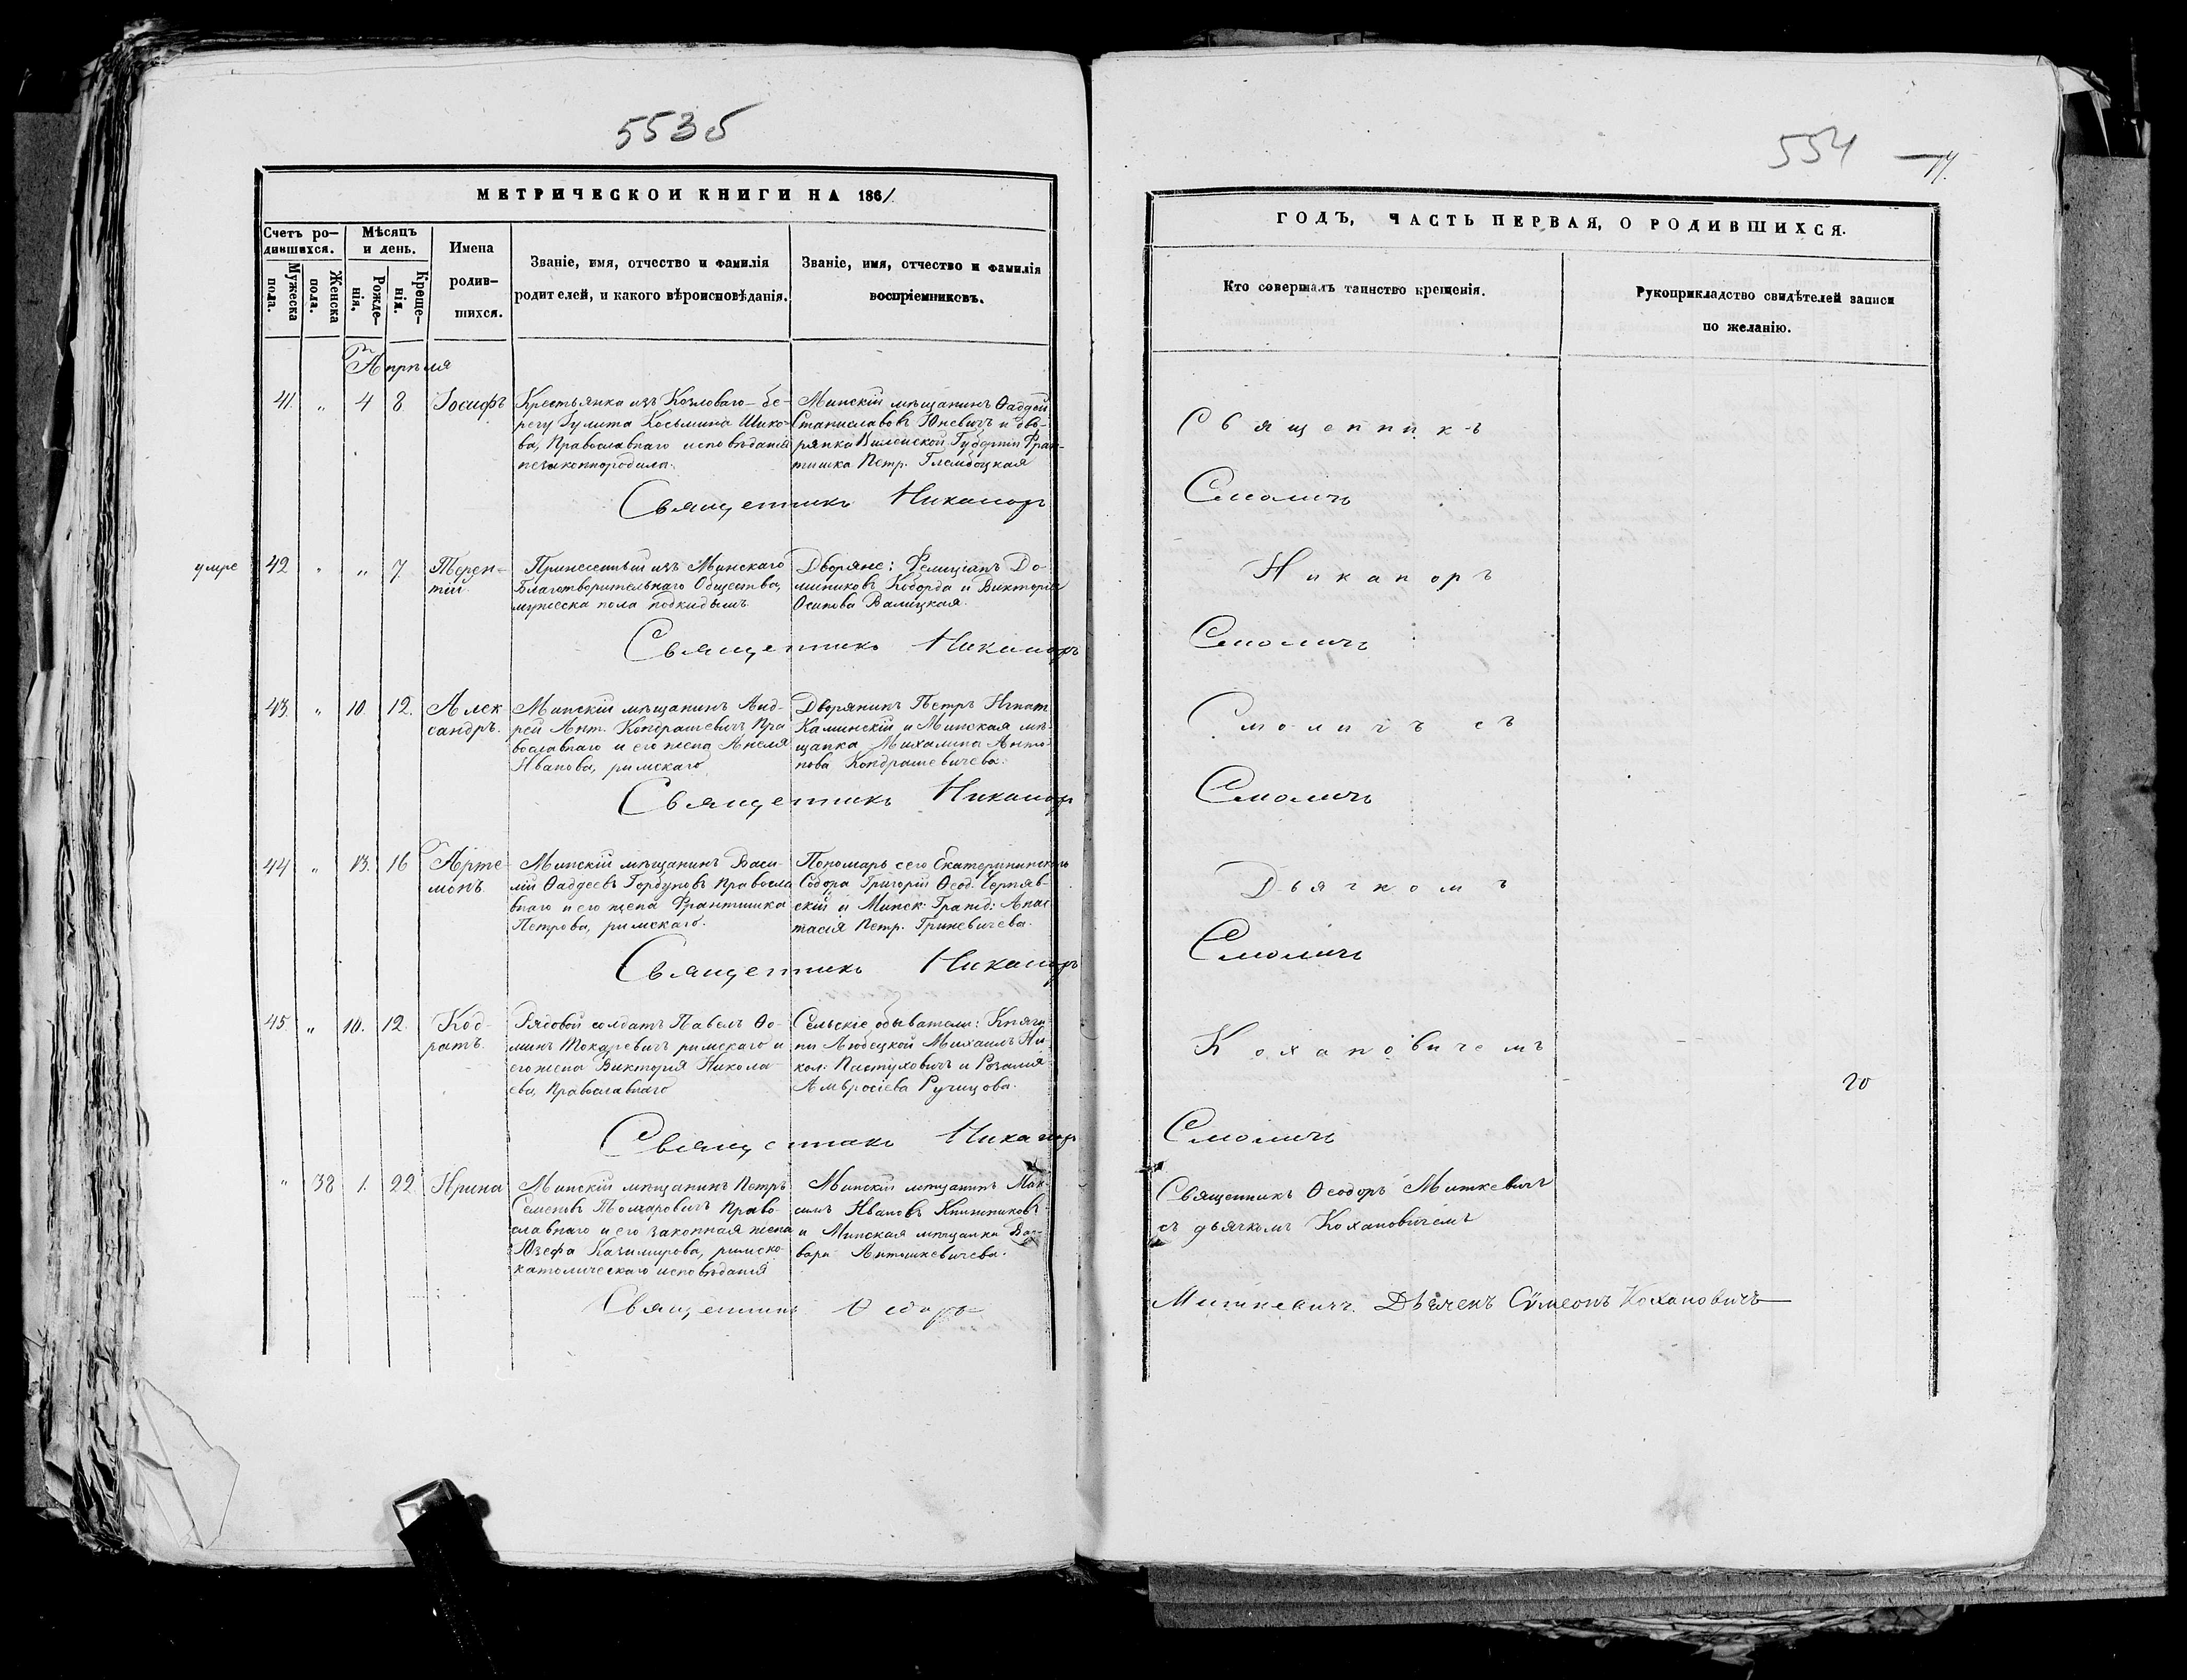 5535
МЕТРИЧЕСКОИ КНИГИ НА 1861
Счетъ ро-
дившихся.
Мѣсяцъ
и день.
Мужеска
пола.
Женска
пола.
Рожде-
нія.
Креще-
нія.
Имена
родив-
шихся.
Званіе, имя, отчество и фамилія
родителей, и какого вѣроисповѣданія.
Званіе, имя, отчество и фамилія
воспріемниковъ.
Апрѣля
41. " 4 8 Іосифъ
Крестьянка изъ Козловаго-бе-
регу Іулита Косьмина Шико-
ва, Православнаго исповѣданія
незаконнородила.
Минскій мѣщанинъ Ѳаддей
Станиславовъ Юневичъ и дво-
рянка Виленской Губерніи Фран-
тишка Петр. Глембоцкая
Священникъ Никаноръ
умре
42 " " 7 Терен-
тій.
Принесенный изъ Минскаго
Благотворительнаго Общества,
мужеска пола подкидышъ
Дворяне: Фелиціанъ До-
миниковъ Коборда и Викторія
Осипова Валицкая.
Священникъ Никаноръ
43. " 10. 12. Алек
сандръ.
Минскій мѣщанинъ Анд-
рей Ант. Кондрашевичъ Пра
вославнаго и его жена Анеля
Иванова, римскаго
Дворянинъ Петръ Игнат.
Калинскій и Минская мѣ-
щанка Михалина Анто-
нова Кондрашевичева.
Священникъ Никаноръ
44 " 13. 16 Арте-
монъ.
Минскій мѣщанинъ Васи-
лій Ѳаддеевъ Горбуновъ Правосла
внаго и его жена Франтишка
Петрова, римскаго.
Пономарь сего Екатерининскаго
Собора Григорій Ѳеод. Черняв-
скій и Минск. Гражд: Анас
тасія Петр. Гриневичева.
Священникъ Никаноръ
45 " 10. 12. Код-
ратъ.
Рядовой солдатъ Павелъ Ѳо-
минъ Токаревичъ римскаго и
его жена Викторія Никола-
ева, Православнаго
Сельскіе обыватели: Княги-
ни Любецкой Михаилъ Ни-
кол. Пастуховичъ и Розалія
Амвросіева Ручцова.
Священникъ Никаноръ
" 38 1. 22 Ирина
Минскій мѣщанинъ Петръ
Семеновъ Токаровичъ Право-
славнаго и его законная жена
Юзефа Казимирова, римско-
католическаго исповѣданія
Минскій мѣщанинъ Мак-
симъ Ивановъ Книжниковъ
и Минская мѣщанка Вар-
вара Антошкевичева.
Священникъ Ѳеодоръ
554
ГОДЪ, ЧАСТЬ ПЕРВАЯ, О РОДИВШИХСЯ.
Кто совершалъ таинство крещенія.
Рукоприкладство свидѣтелей записи
по желанію.
Священникъ
Смоличъ
Никаноръ
Смоличъ
Смоличъ съ
Смоличъ
Дьячкомъ
Смоличъ
Кохановичемъ
20
Смоличъ
Священникъ Ѳеодоръ Миткевичъ
съ дьячкомъ Кохановичемъ
Миткевичъ. Дьячекъ Сѵмеонъ Кохановичъ